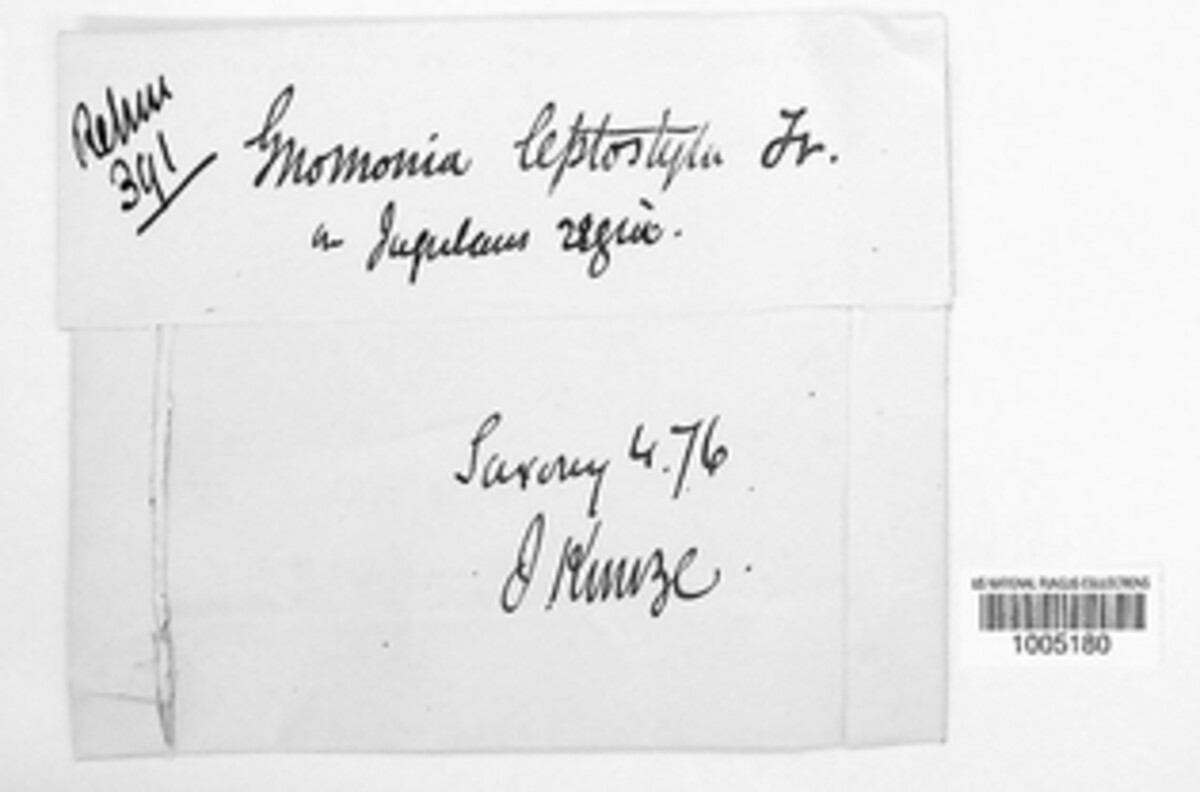 Rehm
391
Gnomonia leptostyla Fr.
on Juglans regia.
Saxony 4.76
J Kunze.
US NATIONAL FUNGUS COLLECTIONS
1005180